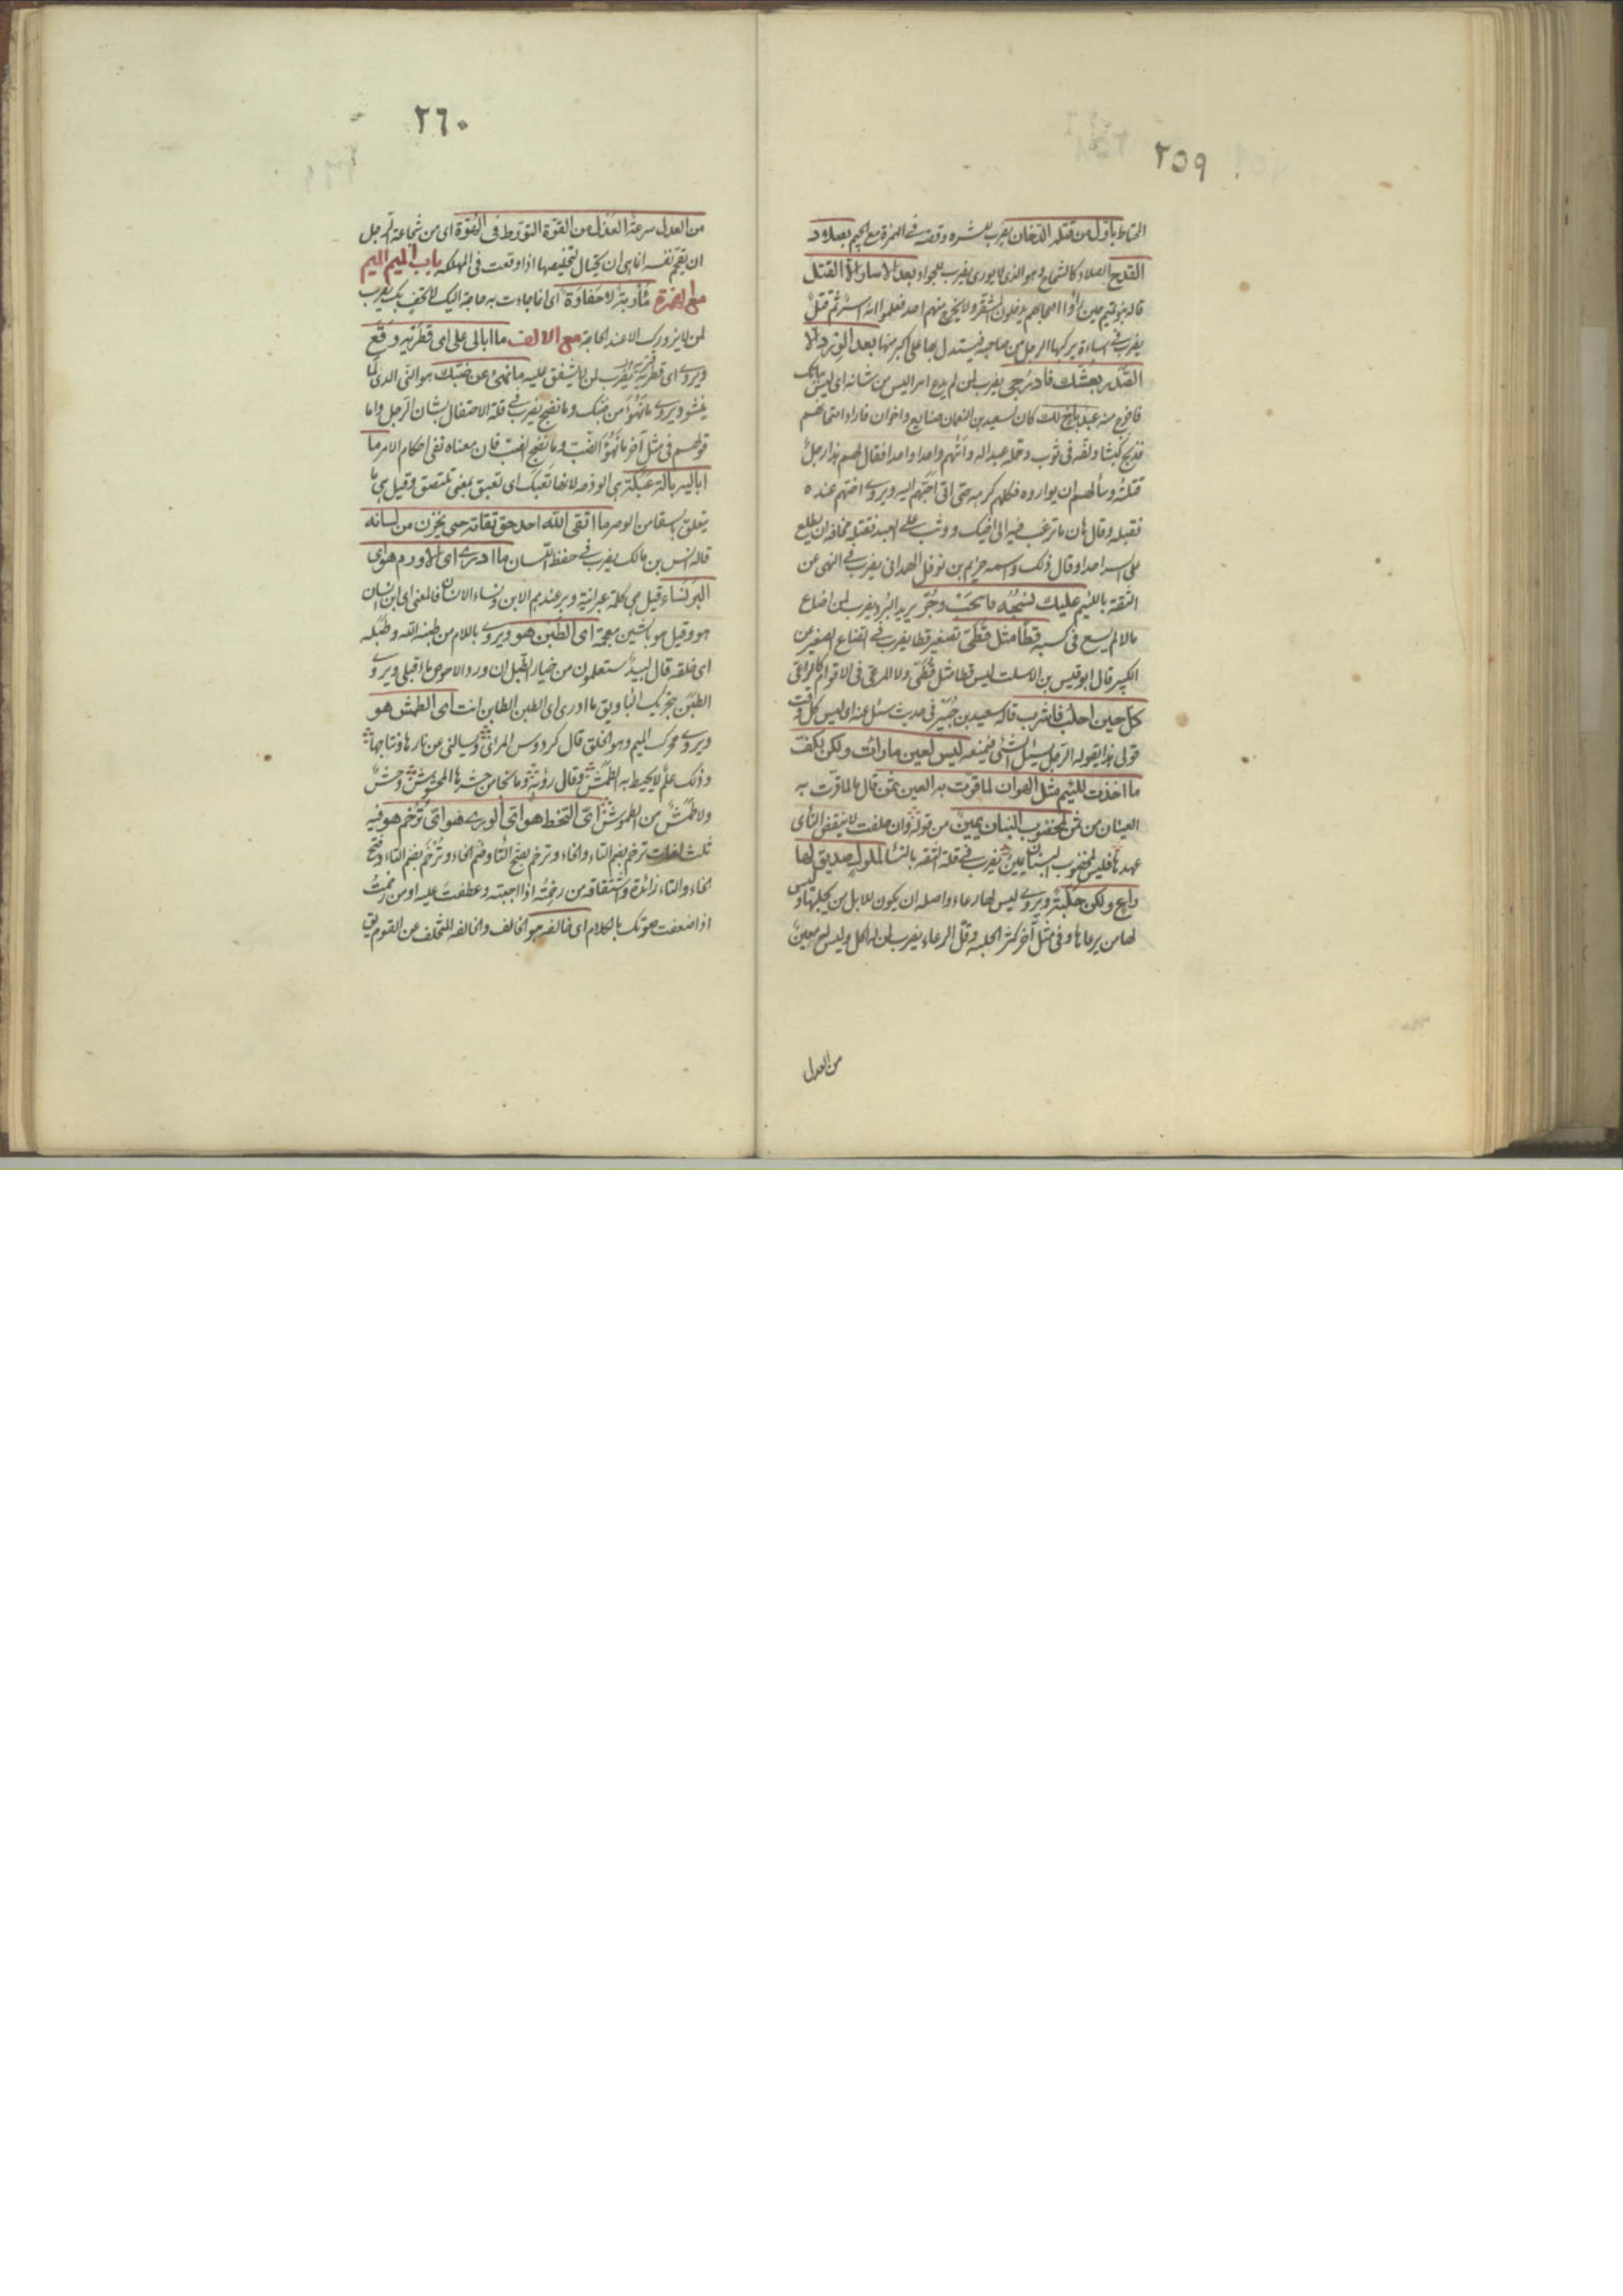 ٢٥٩
الحناط باول من قتله الدخان يضرب للشره وقصته في الهمزة مع الجيم بصلاد
القدح الصلاد كالشحاح وهو الذي لا يورى يضرب للجواد بعد الاسار الا القتل
قاله بنو تميم حين راوا اصحابهم يدخلون المشقر ولا يخرج منهم احد فعلموا انه اسر ثم قتل
يضرب في اساءة يركبها الرجل من صاحبه فيستدل بها على اكبر منها بعد التوترد الا
بعشّك فادرجي يضرب لمن لم يدع امرا ليس من شانه اى ليس
فاخرج منه عبد باخ لك كان لسعيد بن النعمان صنايع واخوان فاراد امتحانهم
فذبح كبشا ولفه في ثوب وقال عبد الله واتهم واحدا واحدا فقال لهم هذا رجل
قتلته وسألهم ان يواروه فكلهم كره حتى اتى احبهم اليه ويروى اخسّهم عنده
فقبله وقال هات ما ترغب فيه الى اخيك ووثب على العبد فقتله مخافة ان يطلع
على السر احدا وقال ذلك واسمه خزيم بن نوفل الهمداني يضرب في النهى عن
الثقة باللئيم عليك نسجه فاسحب وجرّ يريد البرد يضرب لمن اضاع
مالا لم يسع في كسبه قطا مثل قُطَيّ تصغير قطا يضرب في اقناع الصغير من
الكبير قال ابو قيس بن الاسلت ليس قطا مثل قطىّ ولا المرعى في الاقوام كالراعى
كل حين احلب فاشرب قاله سعيد بن جُبَير في حديث سئل عنه اى ليس كل وقت
قولى هذا يقوله الرجل يسئل الشئ فيمنعه ليس لعين ما رات ولكن بكف
ما اخذت للئيم مثل الهوان لما قرت به العين ثمن قال ما قرّت به
العينان من ثمن لمخضوب البنان يمين من قوله وان حلفت لا ينقض الناى
عهدها فليس لمخضوب البنان يمين يضرب في قلة الثقة بالنساء لملول صديق لها
راع ولكن حلبة ويروى ليس لها رعاء واصله ان يكون للابل من يحلبها وليس
لها من يرعاها وفي مثل آخر كثر الحلبة وقل الرعاء يضرب لمن له اكل وليس له معين
من العدل
٢٦٠
من العدل سرعة العذل من القوة التورط في الهوّة اى من شجاعة الرجل
ان يقحم نفسه انا هى ان يحتال لتخليصها اذا وقعت في المهلكة باب الميم الميم
مع الهمزة مأربة لا حفاوة اى انما جاءت به حاجة اليك لا تحف بك يضرب
لمن لا يزورك الا عند الحاجة مع الالف ما ابالى على اى قطريه وقع
ويروى اى قطريه يضرب لمن لا يشفق عليه ما نهئ عن ضبك هو النئ الذى لما
ينشو ويروى ما نهؤ من ضبك وما نضج يضرب في قلة الاحتفال بشان الرجل واما
قولهم في مثل آخر ما نهؤ الضب وما نضج الضب فان معناه نفى احكام الامر ما
اباليه بالة عبكة هى الوذحة لانها تعبك اى تعبق بمعنى تلتصق وقيل هى ما
يتعلق بالسقا من الوضر ما اتقى الله احد حق تقاته حتى يخزن من لسانه
قاله انس بن مالك يضرب في حفظ اللسان ما ادرى اى الاورم هو اى
البرنساء قيل هى كلمة عبرانية وبر عندهم الابن ونساء الانسان فالمعنى اى ابن انسان
هو وقيل هو باشين معجمة اى الطبن هو ويروى باللام من طبنه الله وطبله
اى خلقه قال لبيد ستعلمون من خيار الطبل ان ورد الاحوص ماء قبلى ويروى
الطبن بتحريك الباء ويق ما ادرى اى الطبن الطابن انت اى الطمش هو
ويروى محرك الميم وهو الخلق قال كردوس المرائى وسيالنى عن نارها ونتاجها
وذلك علم لا يحيط به الطمش وقال رؤبة وما نجا من حشرها المحشوش وحش
ولا طمش من الطموش اىّ التخط هو اىّ الورى هو اىّ تُرخم هو فيه
ثلث لغات ترخم بضم التاء والخاء وترخم بفتح التا وضم الخاء وتُرخَم بضم التاء وفتح
الخاء والتاء زائدة واشتقاقه من رخمته اذا احببته وعطفت عليه او من رخمت
اذا ضعفت صوتك بالكلام اى خالفة هو الخالف والخالفة المتخلف عن القوم يق